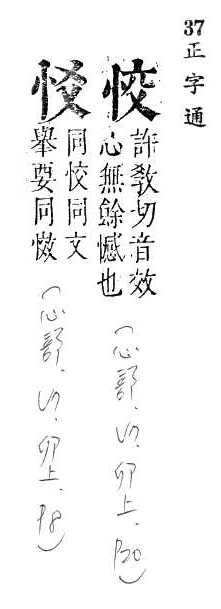 37 正字通
恔
許教切音效
心無餘憾也
(心部. 卯上. P20)
同恔同文
舉要同
(心部. 卯上. P8)